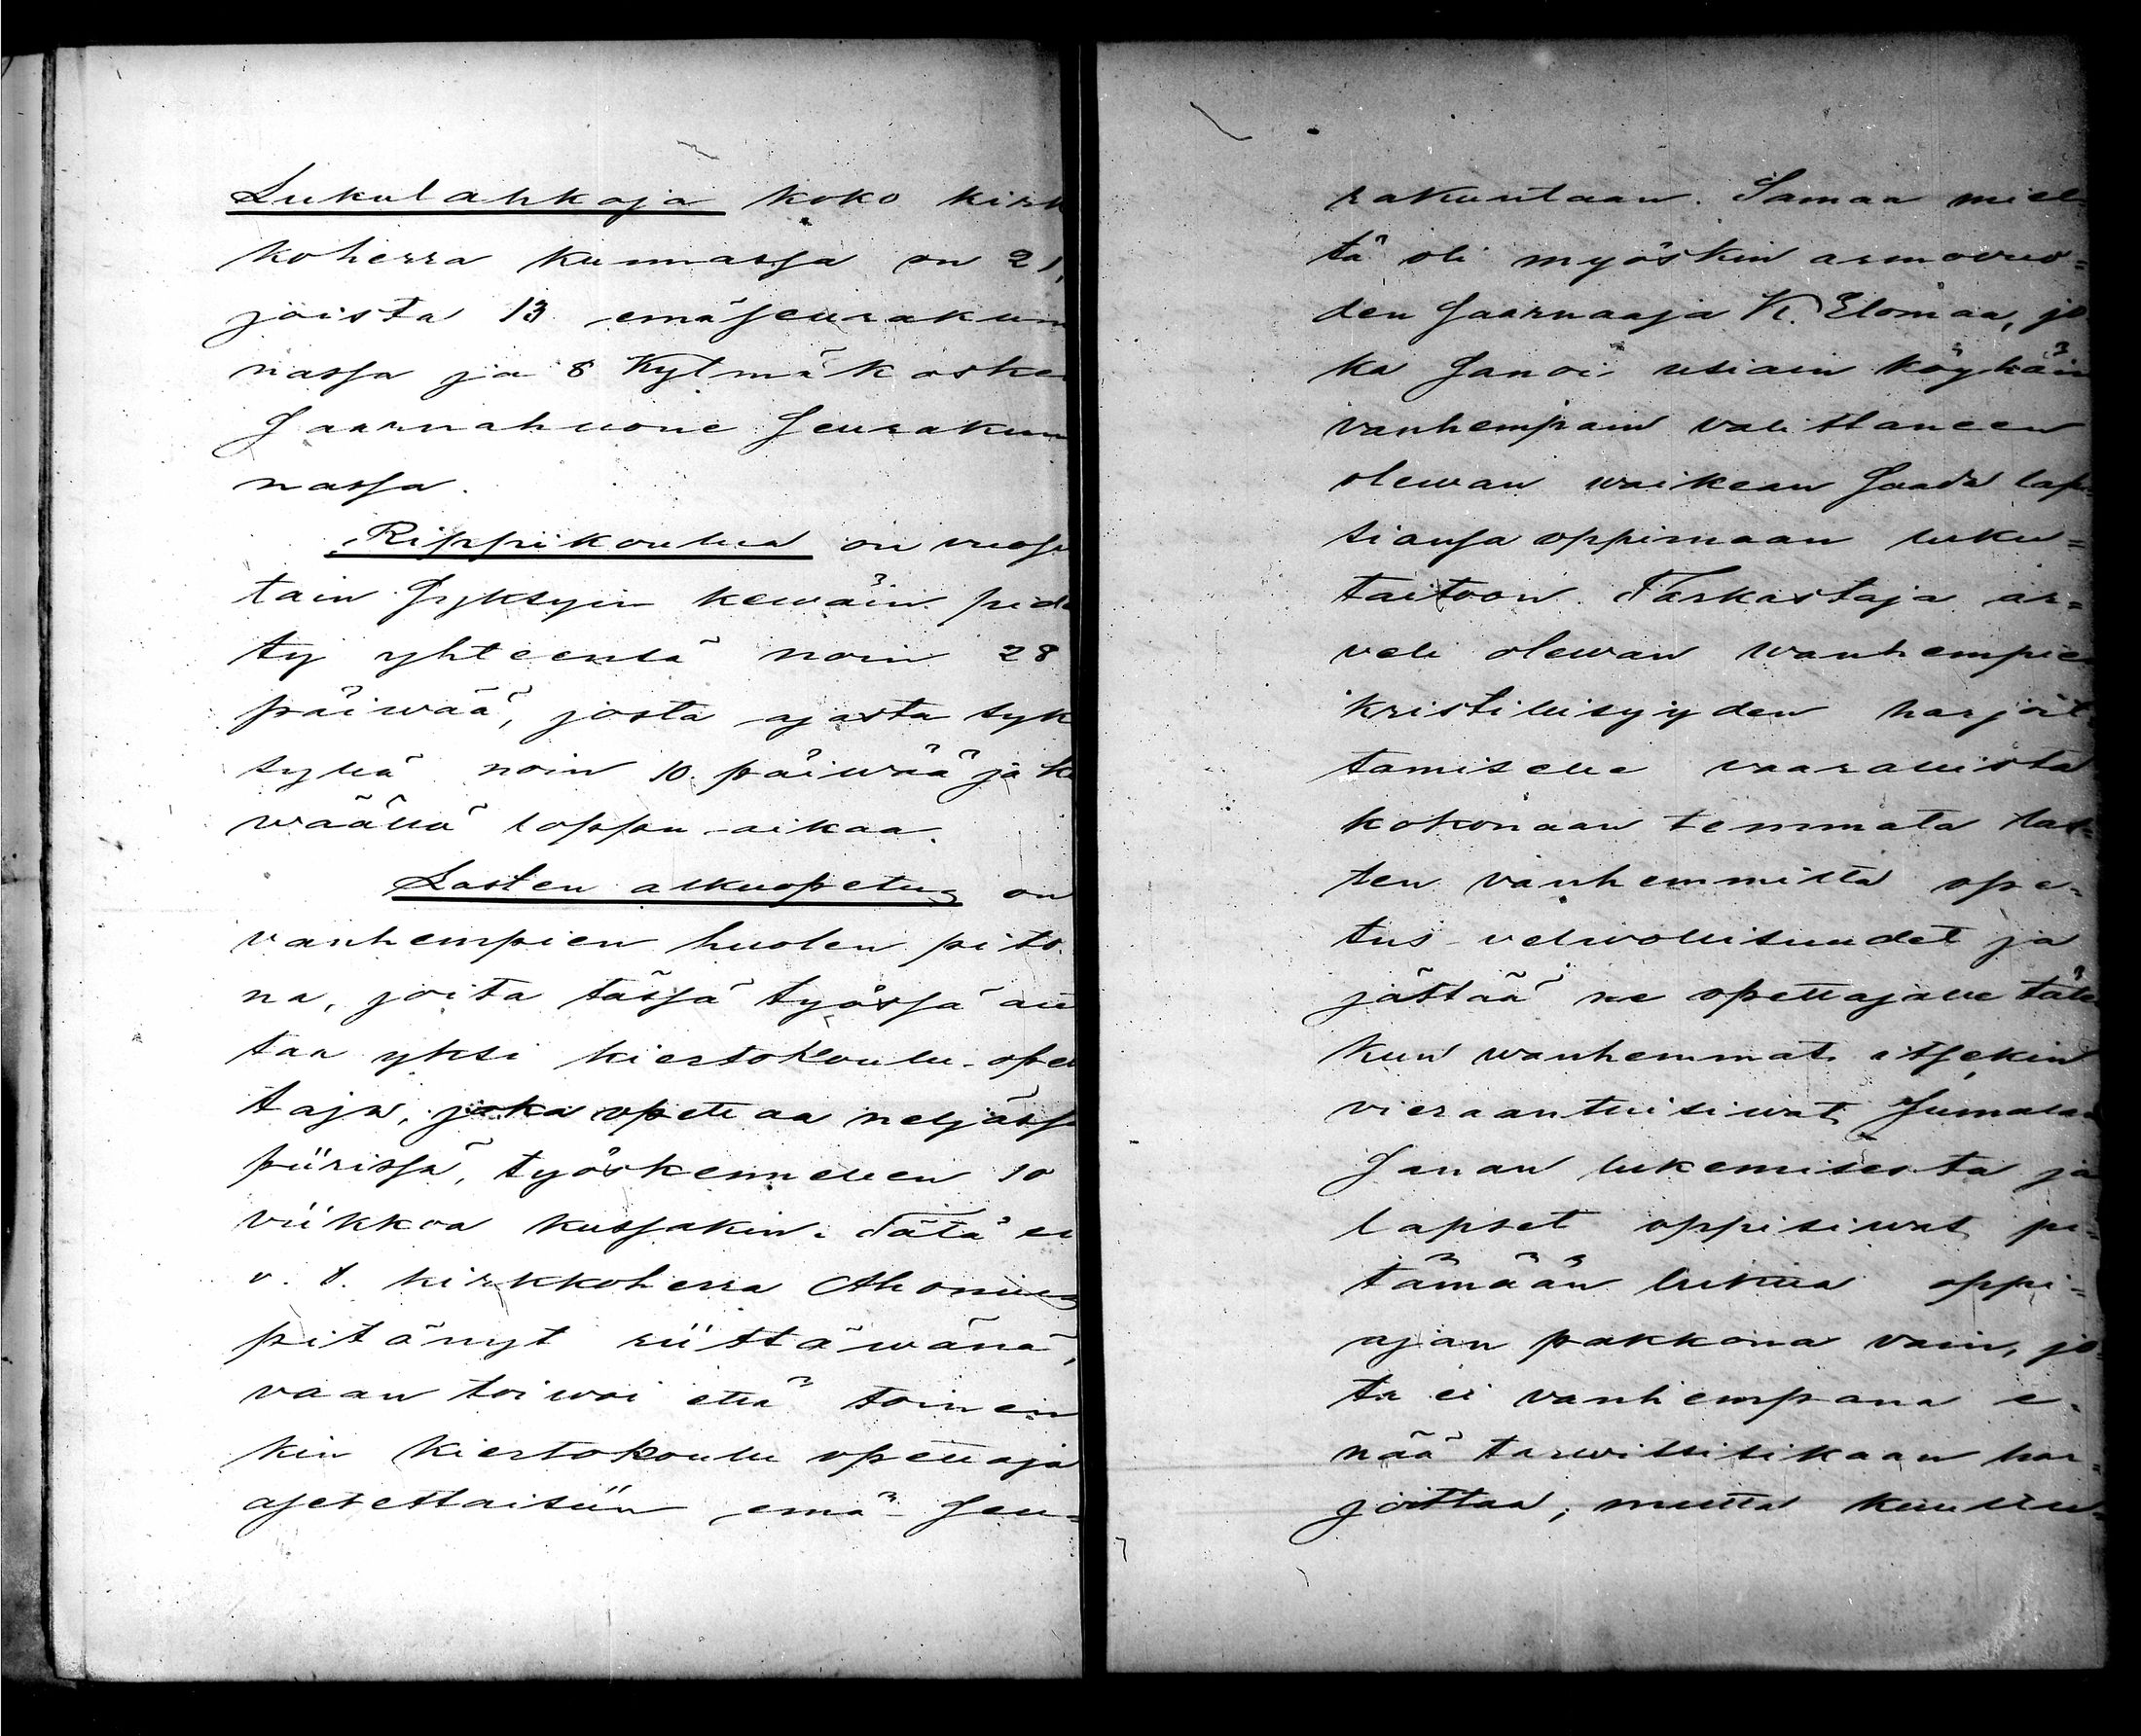 Lukulahkoja koko kirk
koherra kunnassa on 21,
joista 13 emäseurakun
nassa ja 8 Kylmäkosken
Saarnahuone seurakun
nassa.
Rippikoulua on vuosi
tain syksyin kewäin pidet
ty yhteensä noin 28
päiwää, josta ajasta syk
syllä noin 10 päiwää ja ke
wäällä loppu-aikaa.
Lasten alkuopetus on
vanhempien huolen pito
na, joita tässä työssä aut
taa yksi kiertokoulu-opet
taja, joka opettaa neljässä
piirissä, työskennellen 10
viikkoa kussakin. Tätä ei
v. t. kirkkoherra Ahonius
pitänyt riittäwänä,
vaan toiwoi että toinen
kin kiertokoulu opettaja
asetettaisiin emä-seu=
rakuntaan. Samaa miel
tä oli myöskin armovuo=
den saarnaaja K. Elomaa, jo
ka sanoi usiain köyhäin
vanhempain valittaneen
olewan waikean saada lap=
siansa oppimaan luku=
taitoon. Tarkastaja ar=
veli olewan wanhempien
kristillisyyden harjoit=
tamiselle vaarallista
kokonaan temmata las=
ten vanhemmilta ope=
tus-velwollisuudet ja
jättää ne opettajalle täll
kun wanhemmat itsekin
vieraantuisiwat Jumalan
Sanan lukemisesta ja
lapset oppisiwat pi=
tämään lukua oppi=
ajan pakkona vain, jo=
ta ei vanhempana e=
nää tarwitsisikaan har=
joittaa; mutta kuullu=